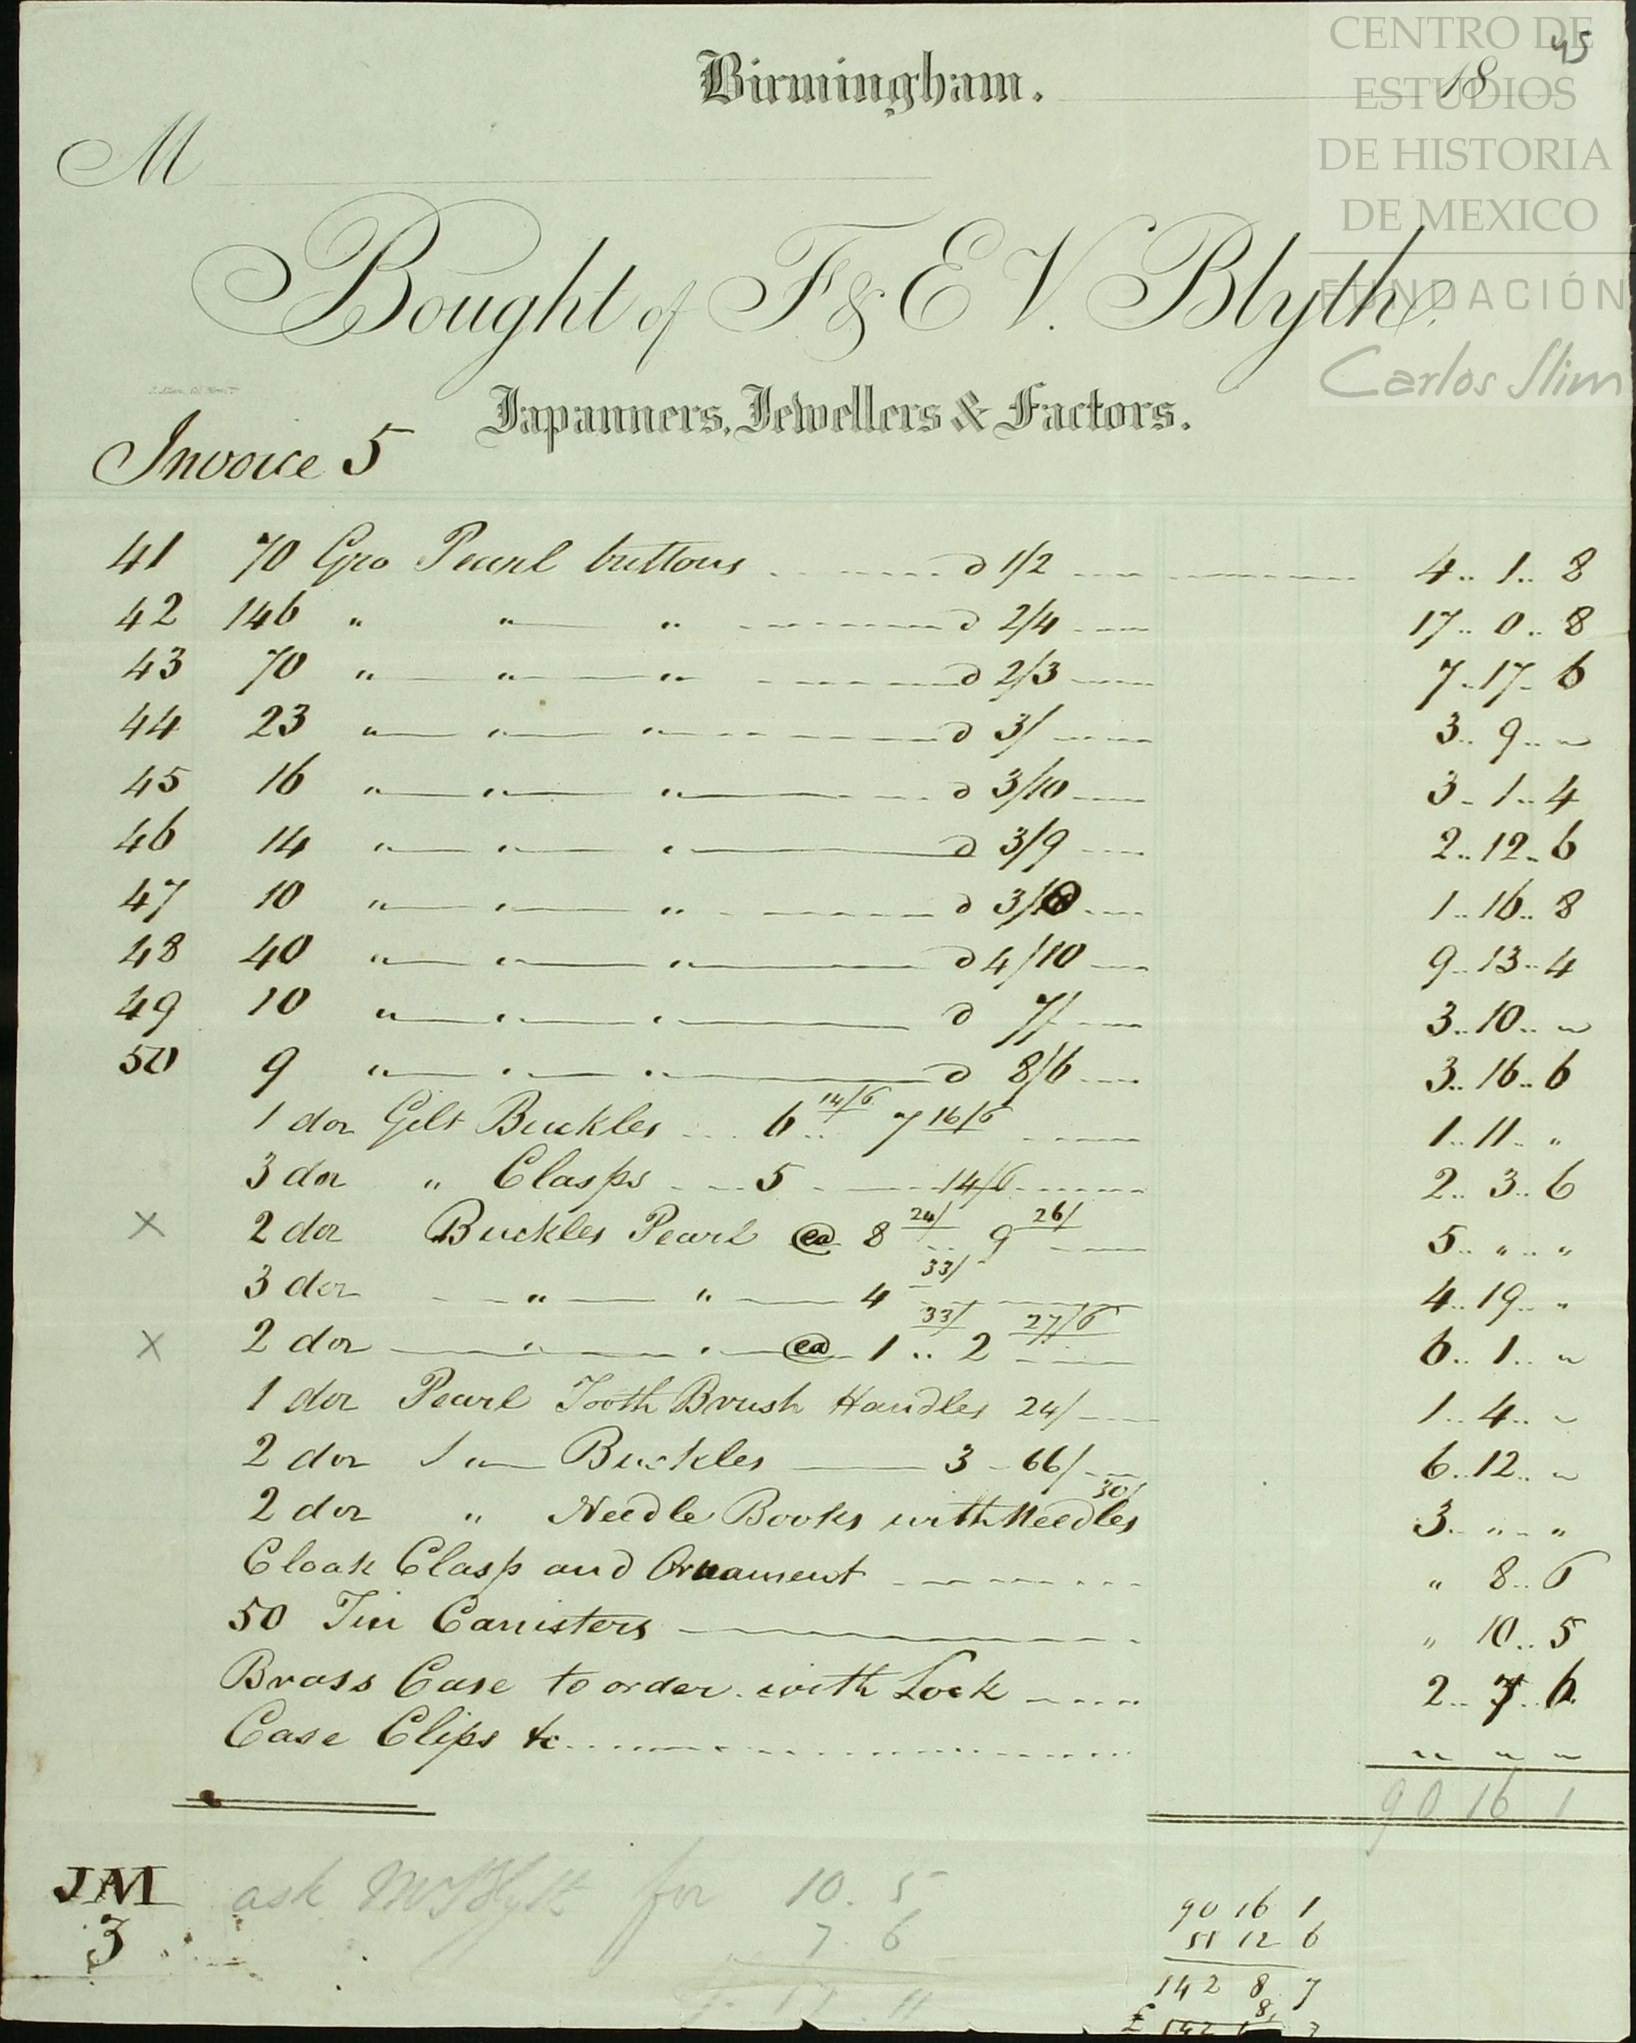 CENTRO DE
ESTUDIOS
DE HISTORIA
DE MEXICO
FUNDACIÓN
Carlos Slim
45
Birmingham. 18
M
Bought of F & E V. Blyth.
Japanners, Jewellers & Factors.
Invoice 5
41 70 Gro Pearl buttons @ 1/2 4.. 1.. 8
42 146 " " " @ 2/4 17.. 0.. 8
43 70 " " " @ 2/3 7.. 17.. 6
44 23 " " " @ 3/ 3.. 9.. "
45 16 " " " @ 3/10 3.. 1.. 4
46 14 " " " @ 3/9 2.. 12.. 6
47 10 " " " @ 3/8 1.. 16.. 8
48 40 " " " @ 4/10 9.. 13.. 4
49 10 " " " @ 7/ 3.. 10.. "
50 9 " " " @ 8/6 3.. 16.. 6
1 doz Gilt Buckles 6.. 14/6 7 16/6 1.. 11.. "
3 doz " Clasps 5 14/6 2.. 3.. 6
X 2 doz Buckles Pearl ea 8 24/ .. 9 26/ 5.. " .. "
3 doz " " 4 33/ 4.. 19.. "
X 2 doz " " ea 1 33/ .. 2 27/6 6.. 1.. "
1 doz Pearl Tooth Brush Handles 24/ 1.. 4.. "
2 doz " Buckles 3 66/ 6.. 12.. "
2 doz " Needle Books with Needles 30/ 3.. " .. "
Cloak Clasp and Ornament " 8.. 6
50 Tin Canisters " 10.. 5
Brass Case to order with Lock 2.. 7.. 6
Case Clips &c " " "
90 16 1
JM
3
ask Mr Blyth for 10. 5
7. 6
17. 11
90 16 1
51 12 6
142 8 7
£ 142 7